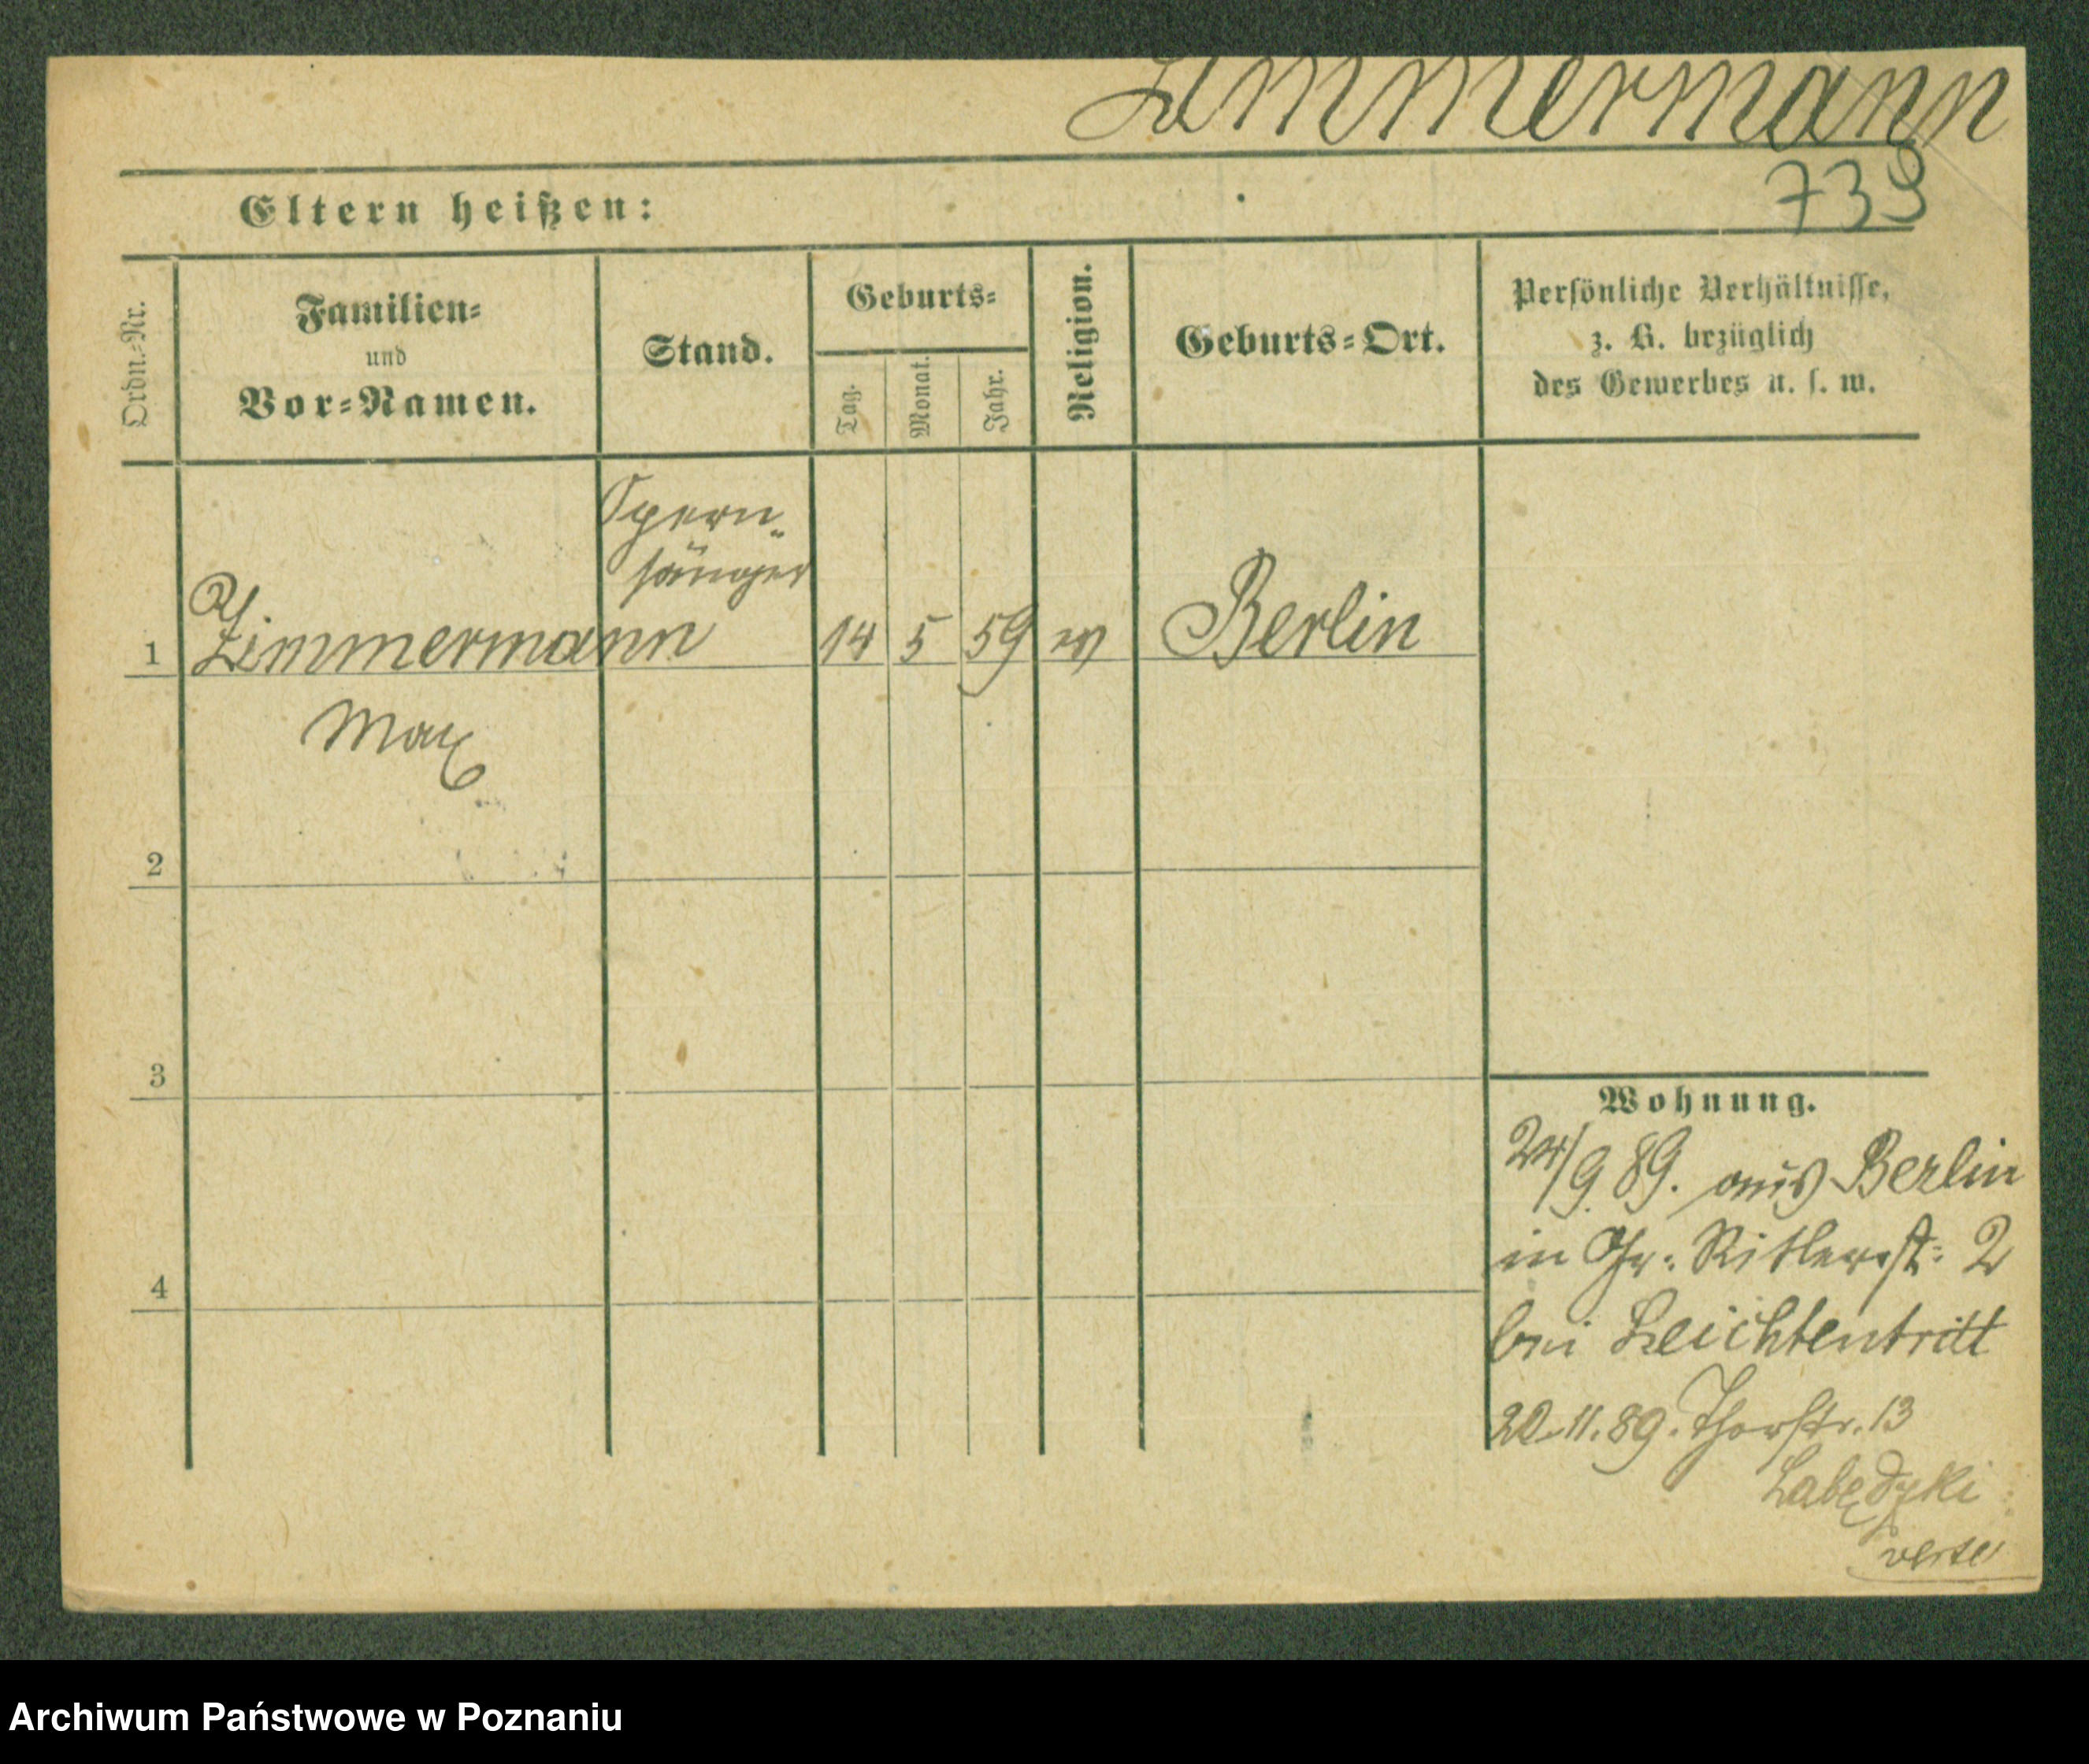 Zimmermann
739
Eltern heißen:
Ordn.-Nr.
Familien-
und
Vor-Namen.
Stand.
Geburts-
Tag.
Monat.
Jahr.
Religion.
Geburts-Ort.
Persönliche Verhältnisse,
z. B. bezüglich
des Gewerbes u. s. w.
Opern-
sänger
1 Zimmermann 14 5 59 Berlin
Max
2
3
4
Wohnung.
24/9 89. aus Berlin
in Gr: Ritterst: 2
bei Leichtentritt
20.11.89. Thorstr. 13
verte
Archiwum Państwowe w Poznaniu